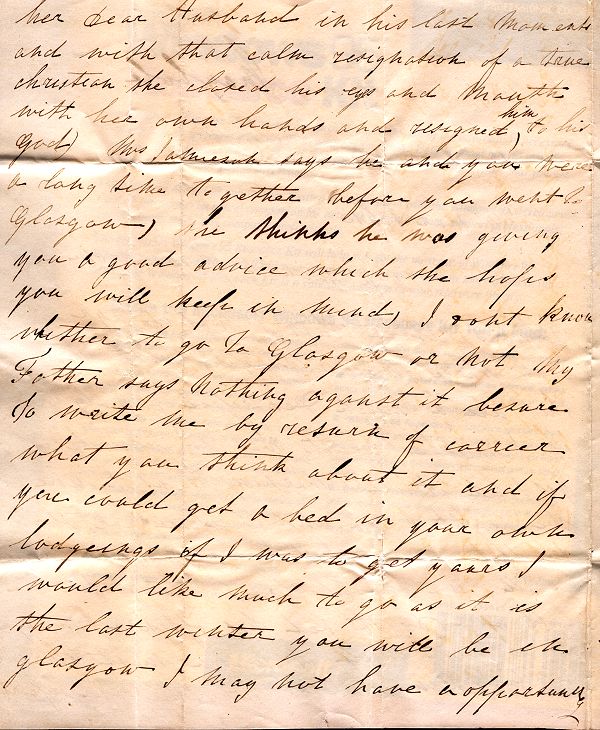 her Dear Husband in his last moments
and with that calm resignation of a true
christian she closed his eys and mouth
with her own hands and resigned him to his
God) Mrs Jamieson says he and you were
a long time together before you went to
Glasgow) she thinks he was giving
you a good advice which she hops
you will keep in mind) I dont know
whither to go to Glasgow or not My
Father says nothing against it besure
to write me by return of carrier
what you think about it and if
you could get a bed in your own
lodgeings if I was to get yours I
would like much to go as it is
the last winter you will be in
glasgow I may not have a opportunity